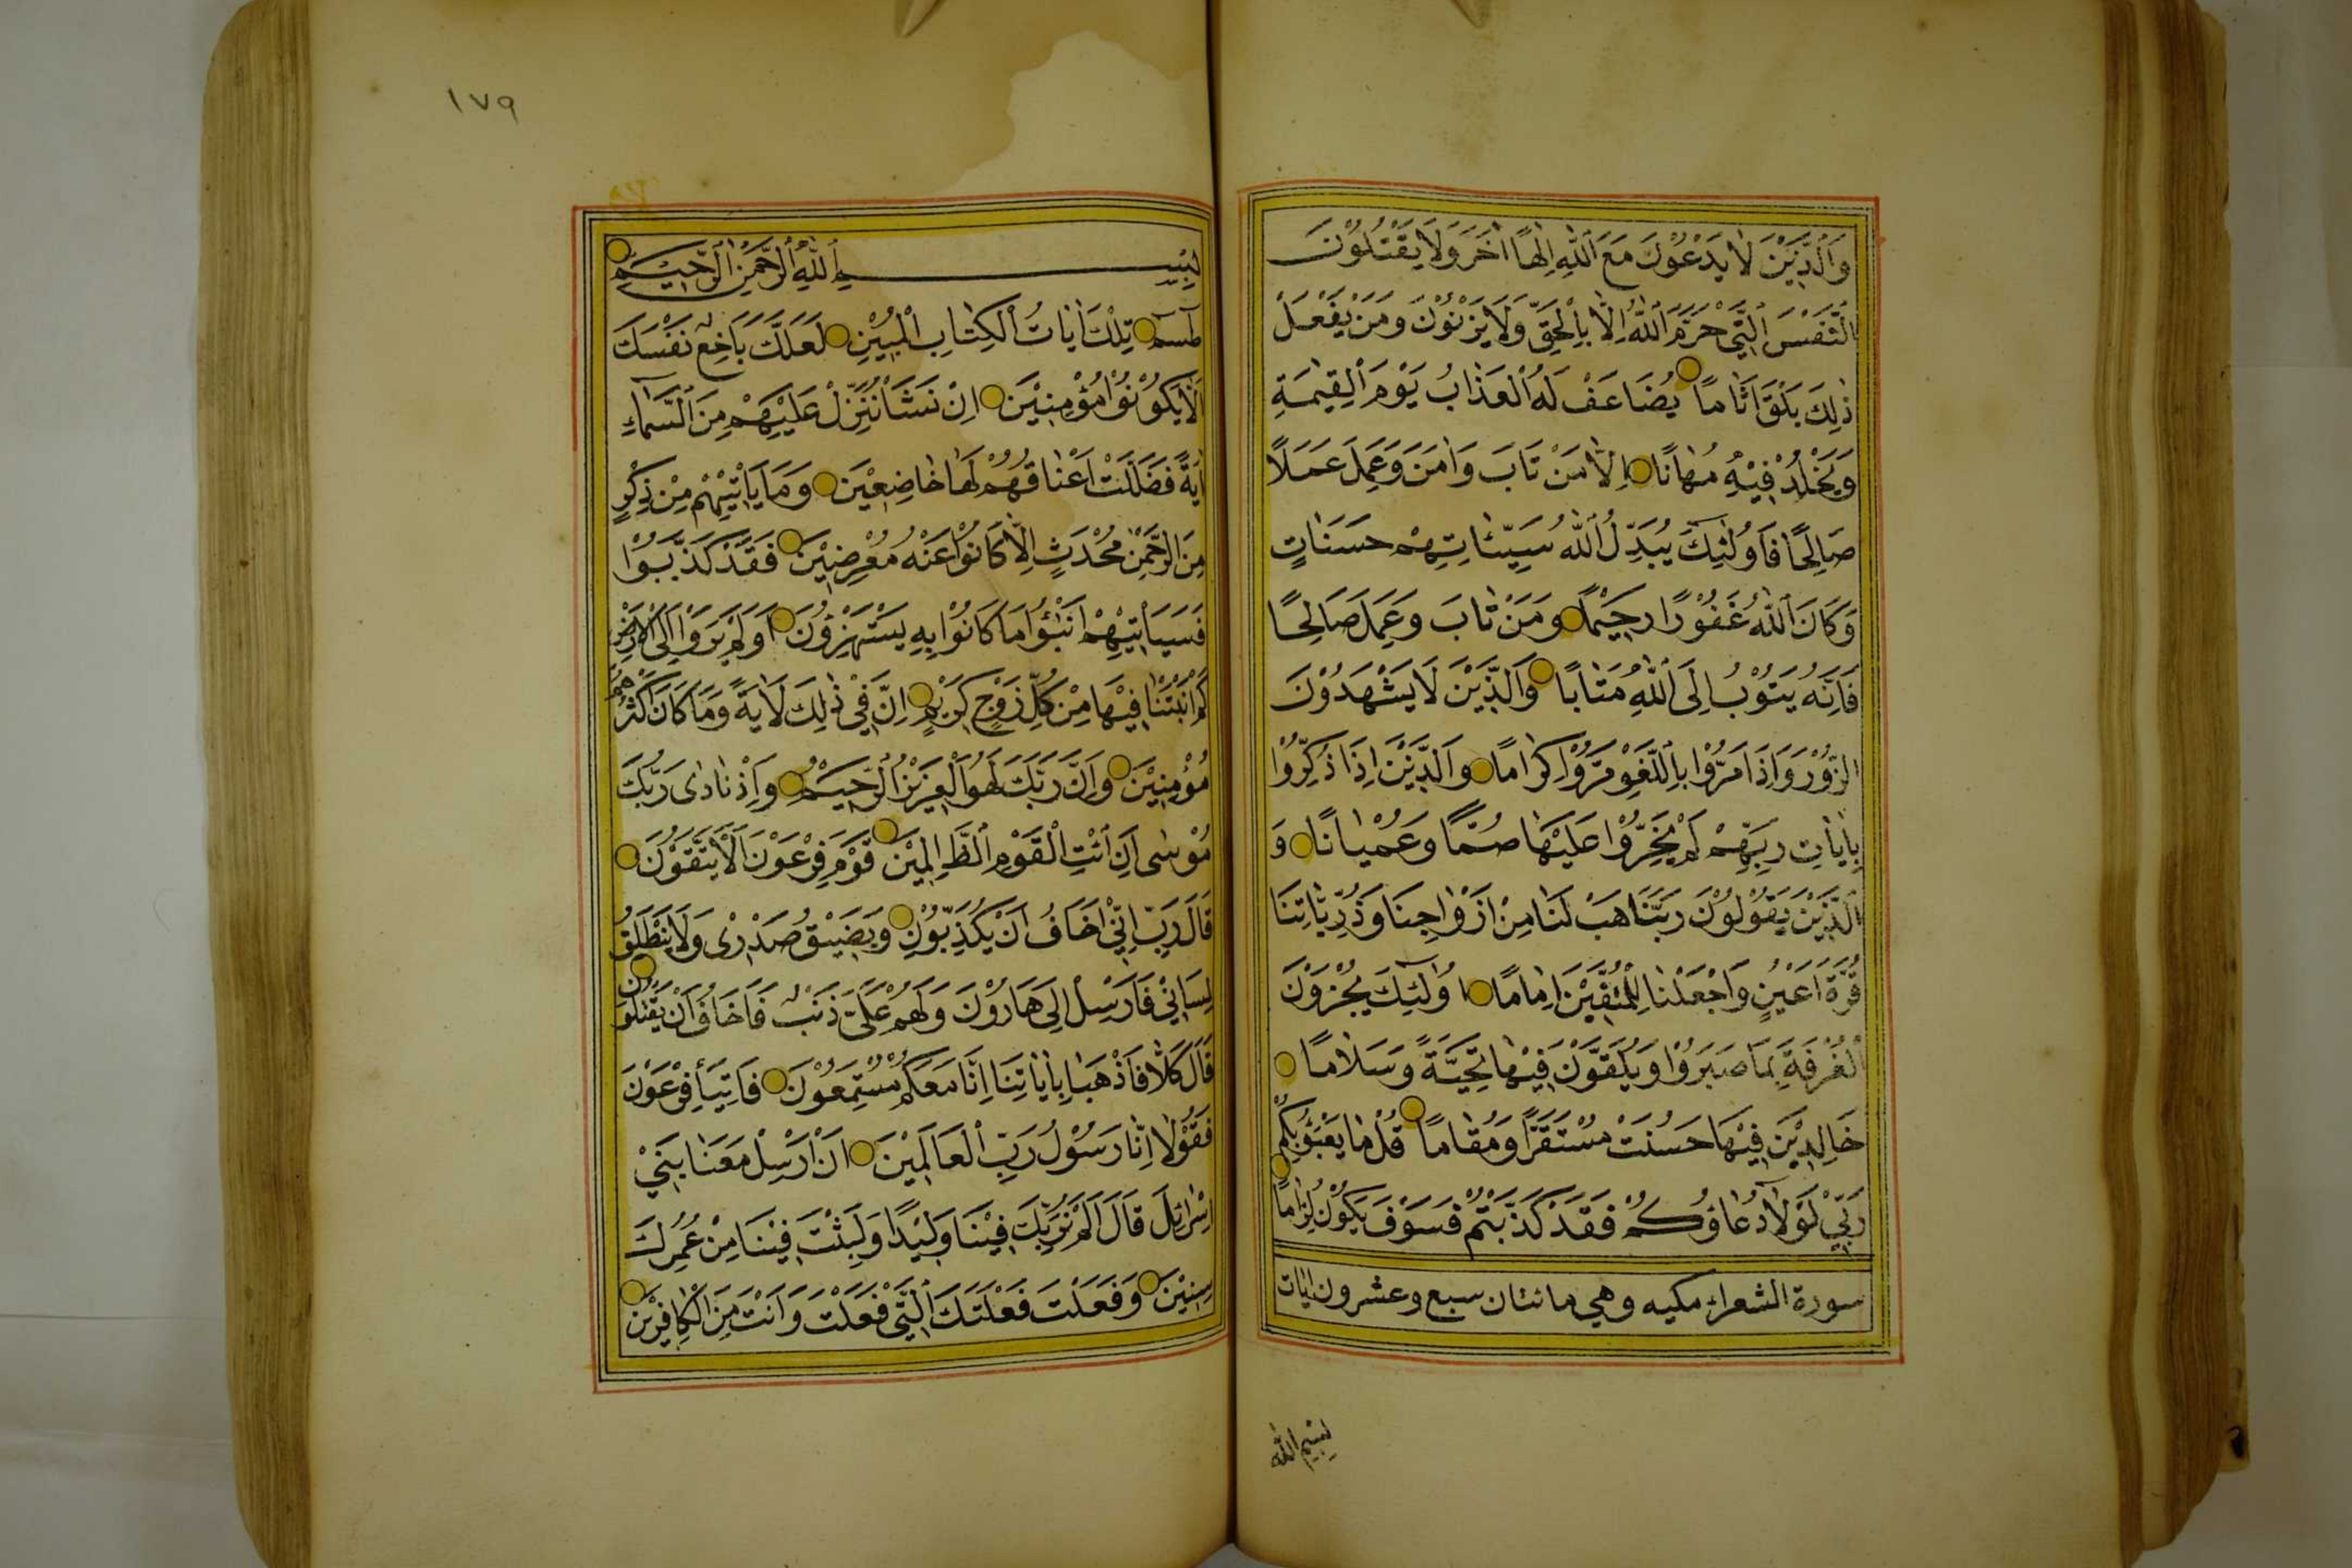 وَٱلَّذِيْنَ لَا يَدْعُوْنَ مَعَ ٱللّٰهِ اِلٰهًا اٰخَرَ وَلَا يَقْتُلُوْنَ
النَّفْسَ ٱلَّتِيْ حَرَّمَ ٱللّٰهُ اِلَّا بِالْحَقِّ وَلَا يَزْنُوْنَ وَمَنْ يَفْعَلْ
ذٰلِكَ يَلْقَ اَثَامًا يُضَاعَفْ لَهُ ٱلْعَذَابُ يَوْمَ ٱلْقِيٰمَةِ
وَيَخْلُدْ فِيْهِ مُهَانًا اِلَّا مَنْ تَابَ وَاٰمَنَ وَعَمِلَ عَمَلًا
صَالِحًا فَاُولٰئِكَ يُبَدِّلُ ٱللّٰهُ سَيِّئَاتِهِمْ حَسَنَاتٍ
وَكَانَ ٱللّٰهُ غَفُوْرًا رَحِيْمًا وَمَنْ تَابَ وَعَمِلَ صَالِحًا
فَاِنَّهُ يَتُوْبُ اِلَى ٱللّٰهِ مَتَابًا وَٱلَّذِيْنَ لَا يَشْهَدُوْنَ
الزُّوْرَ وَاِذَا مَرُّوْا بِاللَّغْوِ مَرُّوْا كِرَامًا وَالَّذِيْنَ اِذَا ذُكِّرُوْا
بِاٰيَاتِ رَبِّهِمْ لَمْ يَخِرُّوْا عَلَيْهَا صُمًّا وَعُمْيَانًا وَ
ٱلَّذِيْنَ يَقُوْلُوْنَ رَبَّنَا هَبْ لَنَا مِنْ اَزْوَاجِنَا وَذُرِّيَّاتِنَا
قُرَّةَ اَعْيُنٍ وَاجْعَلْنَا لِلْمُتَّقِيْنَ اِمَامًا اُولٰئِكَ يُجْزَوْنَ
الْغُرْفَةَ بِمَا صَبَرُوْا وَيُلَقَّوْنَ فِيْهَا تَحِيَّةً وَسَلَامًا
خَالِدِيْنَ فِيْهَا حَسُنَتْ مُسْتَقَرًّا وَمُقَامًا قُلْ مَا يَعْبَؤُ بِكُمْ
رَبِّيْ لَوْلَا دُعَاؤُكُمْ فَقَدْ كَذَّبْتُمْ فَسَوْفَ يَكُوْنُ لِزَامًا
سورة الشعراء مكيه وهي مائتان سبع وعشرون ايات
بسم الله
١٧٩
بِسْمِ ٱللّٰهِ ٱلرَّحْمٰنِ ٱلرَّحِيْمِ
طٰسٓمٓ تِلْكَ اٰيَاتُ ٱلْكِتَابِ الْمُبِيْنِ لَعَلَّكَ بَاخِعٌ نَفْسَكَ
اَلَّا يَكُوْنُوْا مُؤْمِنِيْنَ اِنْ نَشَأْ نُنَزِّلْ عَلَيْهِمْ مِنَ ٱلسَّمَاءِ
اٰيَةً فَضَلَّتْ اَعْنَاقُهُمْ لَهَا خَاضِعِيْنَ وَمَا يَاْتِيْهِمْ مِنْ ذِكْرٍ
مِنَ الرَّحْمٰنِ مُحْدَثٍ اِلَّا كَانُوْا عَنْهُ مُعْرِضِيْنَ فَقَدْ كَذَّبُوْا
فَسَيَاْتِيْهِمْ اَنْبٰؤُا مَا كَانُوْا بِهِ يَسْتَهْزِؤُنَ اَوَلَمْ يَرَوْا اِلَى الْاَرْضِ
كَمْ اَنْبَتْنَا فِيْهَا مِنْ كُلِّ زَوْجٍ كَرِيْمٍ اِنَّ فِيْ ذٰلِكَ لَاٰيَةً وَمَا كَانَ اَكْثَرُهُمْ
مُؤْمِنِيْنَ وَاِنَّ رَبَّكَ لَهُوَ الْعَزِيْزُ الرَّحِيْمُ وَاِذْ نَادٰى رَبُّكَ
مُوْسٰى اَنِ ٱئْتِ الْقَوْمَ ٱلظَّالِمِيْنَ قَوْمَ فِرْعَوْنَ اَلَا يَتَّقُوْنَ
قَالَ رَبِّ اِنِّيْ اَخَافُ اَنْ يُكَذِّبُوْنِ وَيَضِيْقُ صَدْرِىْ وَلَا يَنْطَلِقُ
لِسَانِيْ فَاَرْسِلْ اِلٰى هَارُوْنَ وَلَهُمْ عَلَيَّ ذَنْبٌ فَاَخَافُ اَنْ يَقْتُلُوْنِ
قَالَ كَلَّا فَاذْهَبَا بِاٰيَاتِنَا اِنَّا مَعَكُمْ مُسْتَمِعُوْنَ فَاْتِيَا فِرْعَوْنَ
فَقُوْلَا اِنَّا رَسُوْلُ رَبِّ ٱلْعَالَمِيْنَ اَنْ اَرْسِلْ مَعَنَا بَنِيْ
اِسْرَائِلَ قَالَ اَلَمْ نُرَبِّكَ فِيْنَا وَلِيْدًا وَلَبِثْتَ فِيْنَا مِنْ عُمُرِكَ
سِنِيْنَ وَفَعَلْتَ فَعْلَتَكَ ٱلَّتِيْ فَعَلْتَ وَاَنْتَ مِنَ الْكَافِرِيْنَ